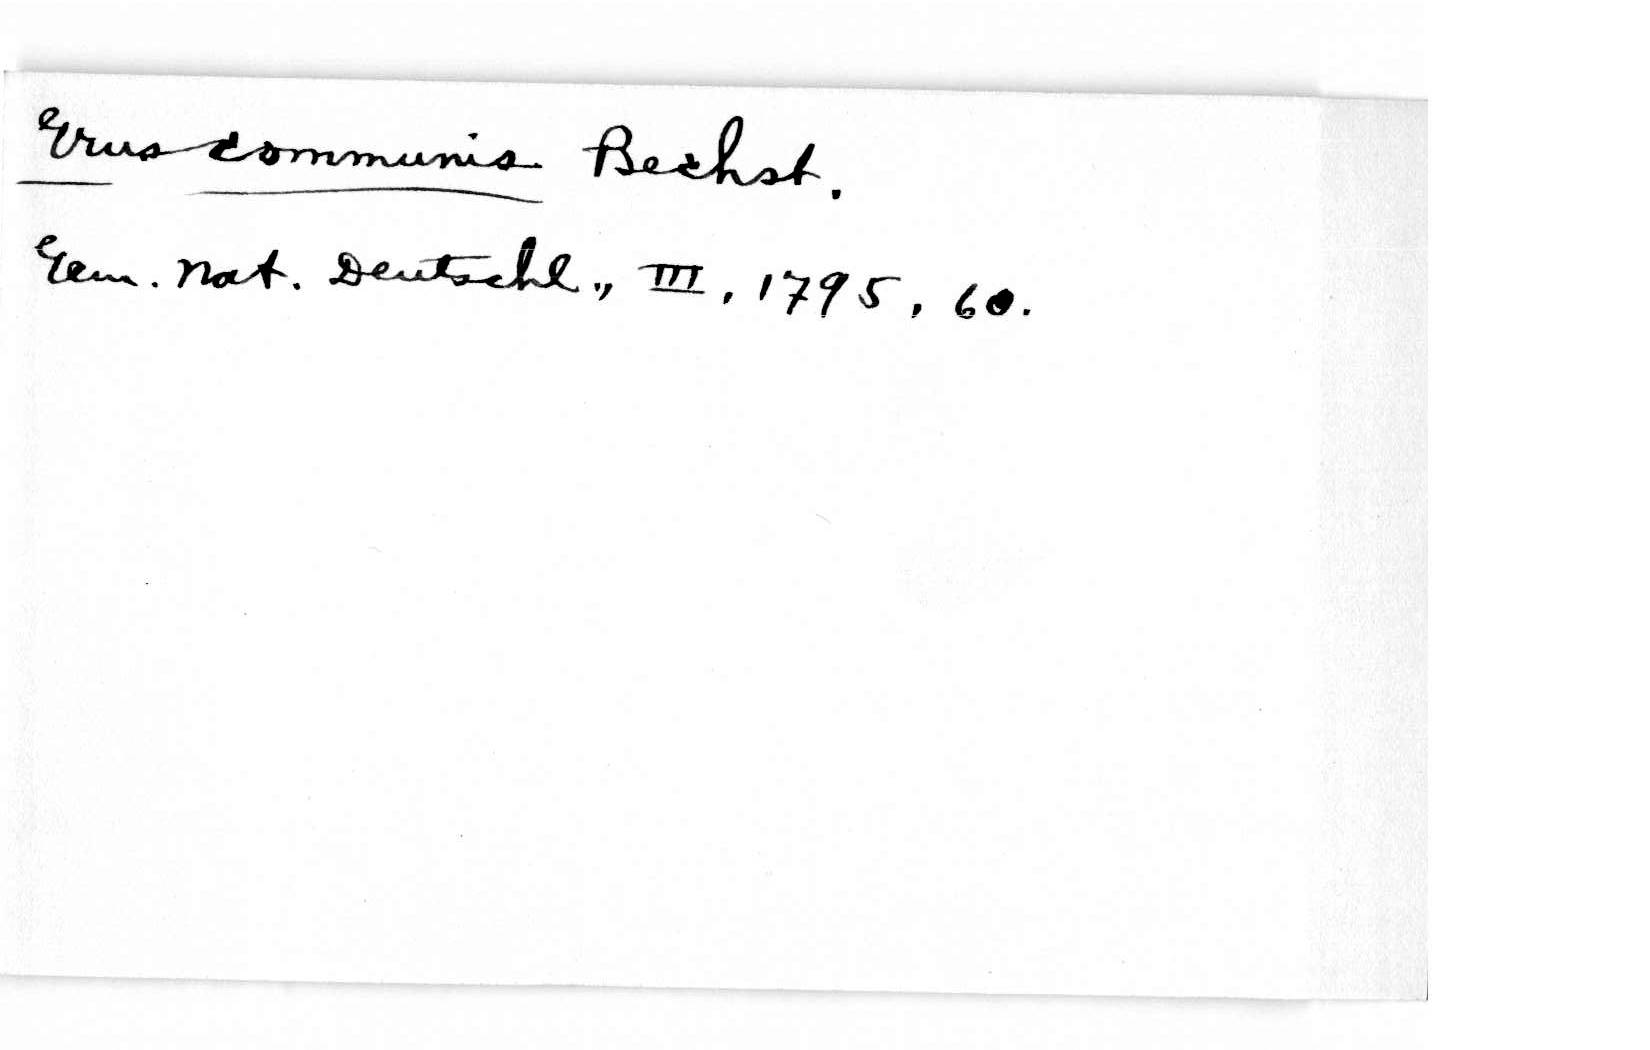 Grus communis Bechst.
Gem. Nat. Deutschl., III, 1795, 60.